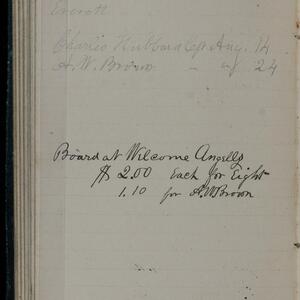 Everett
Charles Hubbard Cpt Aug. 14
A. W. Brown - " 24
Board at Welcome Angells
$ 2.00 each for Eight
1.10 for A.W Brown